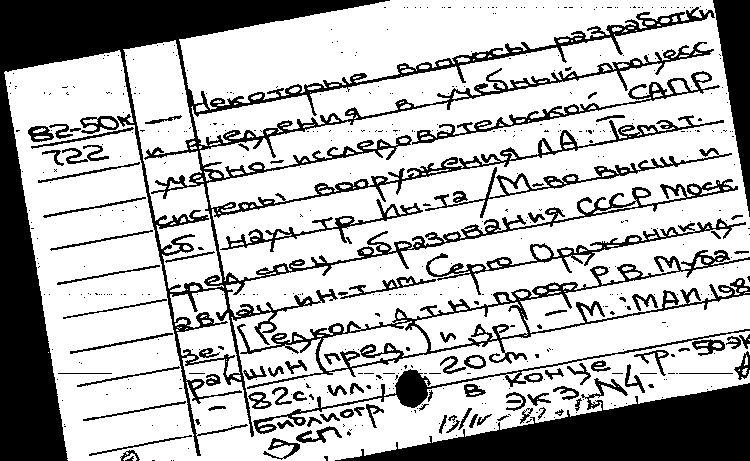 Некоторые вопросы разработки
82-50к — и внедрения в учебный процесс
722
учебно-исследовательской САПР
системы вооружения ЛА: Темат.
сб. науч. тр. Ин-та / М-во высш. и
сред. спец. образования СССР, Моск.
авиац. ин-т им. Серго Орджоникид-
зе; [Редкол.: д.т.н., проф. Р.В. Муба-
ракшин (пред.) и др.]. - М.: МАИ, 198
- 82с., ил.; 20см.
Библиогр в конце тр. - 50эк
ДСП. ЭКЗ. N4.
13/IV - 82